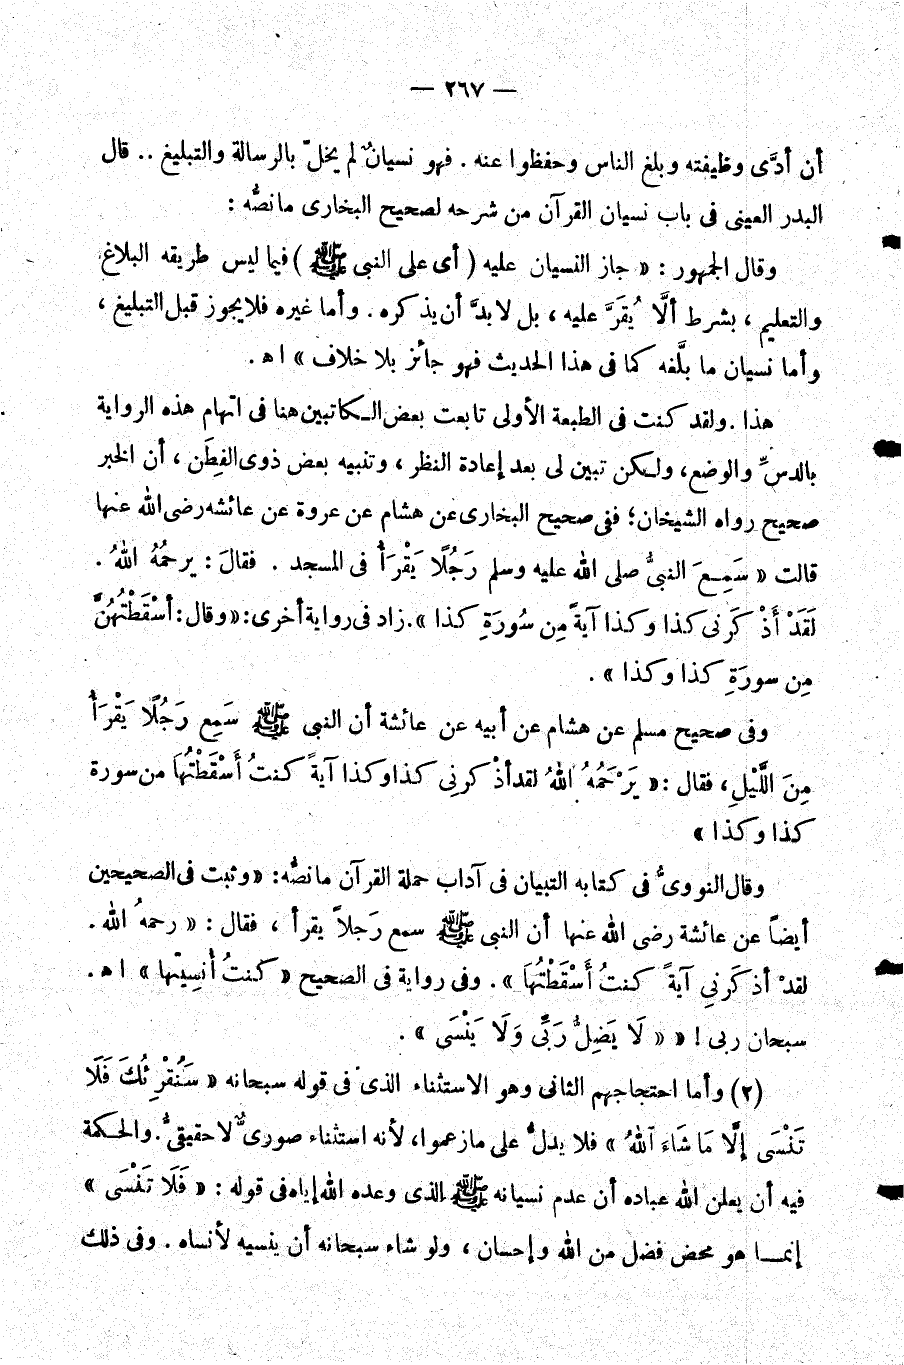 — ٢٦٧ —
أن أدَّى وظيفته وبلغ الناس وحفظوا عنه . فهو نسيانٌ لم يخلّ بالرسالة والتبليغ .. قال
البدر العينى فى باب نسيان القرآن من شرحه لصحيح البخارى مانصُّه :
وقال الجمهور : « جاز النسيان عليه ( أى على النبى ﷺ ) فيما ليس طريقه البلاغ
والتعليم ، بشرط ألَّا يُقَرَّ عليه ، بل لابدَّ أن يذكره . وأما غيره فلايجوز قبل التبليغ ،
وأما نسيان ما بلَّغه كما فى هذا الحديث فهو جائز بلا خلاف » اﻫ .
هذا . ولقد كنت فى الطبعة الأولى تابعت بعض الـكاتبين هنا فى اتهام هذه الرواية
بالدسِّ والوضع، ولـكن تبين لى بعد إعادة النظر ، وتنبيه بعض ذوى الفِطَن ، أن الخبر
صحيح رواه الشيخان؛ ففى صحيح البخارى عن هشام عن عروة عن عائشه رضى الله عنها
قالت « سَمِـعَ النبىُّ صلى الله عليه وسلم رَجُلًا يَقْرَأُ فى المسجد . فقالَ : يرحمُهُ اللهُ .
لَقَدْ أَذْ كَرَنى كذا وكذا آيةً مِن سُورَةِ كذا ». زاد فى رواية أخرى: « وقال : أسْقَطْتُهُنَّ
مِن سورَةِ كذا وكذا » .
وفى صحيح مسلم عن هشام عن أبيه عن عائشة أن النبى ﷺ سَمِع رَجُلًا يَقْرَأُ
مِنَ اللَّيْلِ ، فقال : « يَرْحَمُهُ اللهُ لقد أذْ كرنى كذا وكذا آيةً كنتُ أَسْقَطْتُهَا من سورة
كذا وكذا »
وقال النووىُّ فى كتابه التبيان فى آداب حملة القرآن مانصُّه: « وثبت فى الصحيحين
أيضاً عن عائشة رضى الله عنها أن النبى ﷺ سمع رَجلاً يقرأ ، فقال : « رحمهُ الله .
لقدْ أذ كَرنى آيةً كنتُ أَسْقَطْتُهَا » . وفى رواية فى الصحيح « كنتُ أنسِيتها » اﻫ .
سبحان ربى ! « « لَا يَضِلُّ رَبِّى وَلَا يَنْسَى » .
(٢) وأما احتجاجهم الثانى وهو الاستثناء الذى فى قوله سبحانه « سَنُقْرِئُكَ فَلَا
تَنْسَى إِلَّا مَا شَاءَ اللهُ » فلا يدلُّ على مازعموا، لأنه استثناء صورىٌّ لا حقيقىٌّ. والحـكمة
فيه أن يعلن الله عباده أن عدم نسيانه ﷺ الذى وعده الله إياه فى قوله : « فَلَا تَنْسَى »
إنمـا هو محض فضل من الله وإحسان ، ولو شاء سبحانه أن ينسيه لأنساه . وفى ذلك